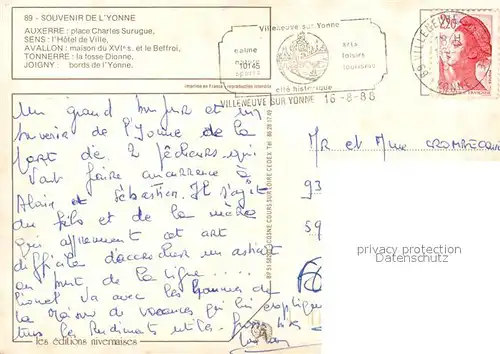 89 - SOUVENIR DE L'YONNE
AUXERRE : place Charles Surugue,
SENS : l'Hôtel de Ville,
AVALLON : maison du XVIe s. et le Beffroi,
TONNERRE : la fosse Dionne,
JOIGNY : bords de l'Yonne.
10145
Imprimé en France - reproduction interdite
Villeneuve sur Yonne
calme
sports
arts
loisirs
tourisme
cité historique
VILLENEUVE SUR YONNE 16-8-88
2,20
Un grand bonjour et un
souvenir de l'Yonne de la
part de 2 pêcheurs qui
vont faire concurrence à
Alain et Sébastien. Il s'agit
du fils et de la mère
qui apprennent cet art
difficile d'accrocher un asticot
au bout de la ligne....
Lionel va avec les hommes de
la maison de vacances qui lui expliquent
tous les rudiments utiles. Grosses bises
MR et Mme
93
59
privacy protection
Copyright by ansichtskartenhandel.eu
les éditions nivernaises